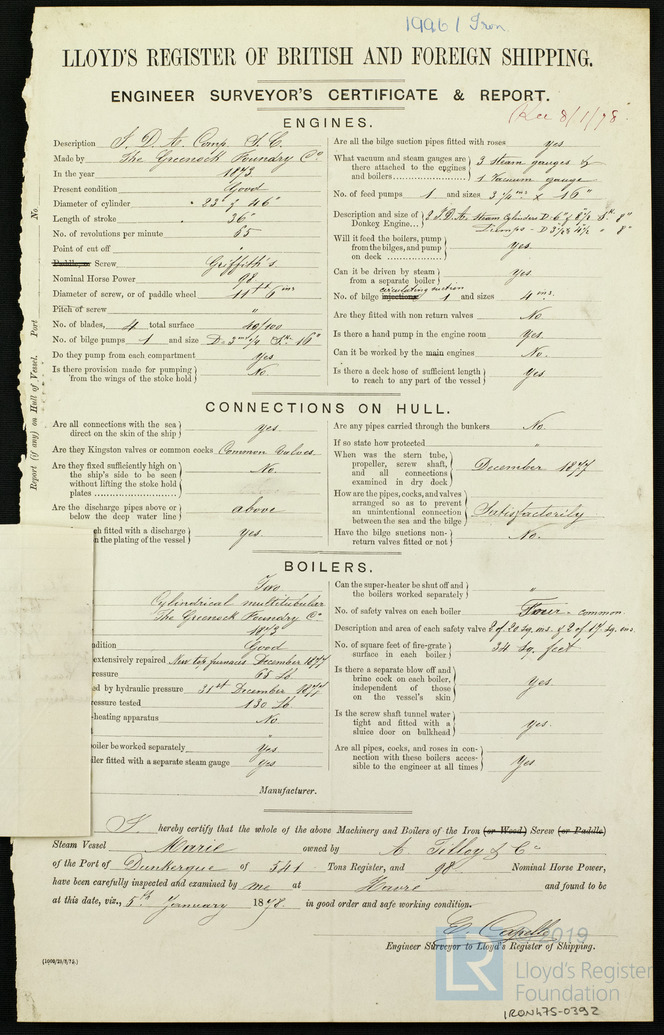 19961 Iron
LLOYD'S REGISTER OF BRITISH AND FOREIGN SHIPPING.
ENGINEER SURVEYOR'S CERTIFICATE & REPORT.
Rec 8/1/78
ENGINES.
Description I. D. A. Comp. S. C.
Made by The Greenock Foundry Co
In the year 1873
Present condition Good
Diameter of cylinder 23" & 46"
Length of stroke 36"
No. of revolutions per minute 65
Point of cut off "
Paddle, or Screw Griffith's
Nominal Horse Power 98
Diameter of screw, or of paddle wheel 11 ft 6 ins
Pitch of screw "
No. of blades, 4 total surface 40/100
No. of bilge pumps 1 and size D = 3 1/4 Sk. 16"
Do they pump from each compartment Yes
Is there provision made for pumping from the wings of the stoke hold No.
Are all the bilge suction pipes fitted with roses yes
What vacuum and steam gauges are there attached to the engines and boilers 3 Steam gauges & 1 Vacuum gauge
No. of feed pumps 1 and sizes 3 1/4 ins x 16"
Description and size of Donkey Engine 2 I.D.A. Steam Cylinders D 6" & 8 1/2 Sk. 8"
Pumps - D 3 1/2 & 4 1/2 " 8"
Will it feed the boilers, pump from the bilges, and pump on deck Yes.
Can it be driven by steam from a separate boiler Yes.
No. of bilge injections circulating suction 1 and sizes 4 ins.
Are they fitted with non return valves No
Is there a hand pump in the engine room Yes.
Can it be worked by the main engines No.
Is there a deck hose of sufficient length to reach to any part of the vessel Yes
Report (if any) on Hull of Vessel. Port No.
CONNECTIONS ON HULL.
Are all connections with the sea direct on the skin of the ship yes.
Are they Kingston valves or common cocks Common Valves
Are they fixed sufficiently high on the ship's side to be seen without lifting the stoke hold plates No.
Are the discharge pipes above or below the deep water line above
ch fitted with a discharge
n the plating of the vessel Yes.
Are any pipes carried through the bunkers No.
If so state how protected "
When was the stern tube, propeller, screw shaft, and all connections examined in dry dock December 1877
How are the pipes, cocks, and valves arranged so as to prevent an unintentional connection between the sea and the bilge Satisfactorily
Have the bilge suctions non-return valves fitted or not No.
BOILERS.
Two
Cylindrical multitubular
The Greenock Foundry Co
1873
ndition Good
extensively repaired New top furnaces December 1877
ressure 65 Lb.
ed by hydraulic pressure 31st December 1877
ressure tested 130 Lb.
-heating apparatus No
"
boiler be worked separately Yes
iler fitted with a separate steam gauge Yes
Manufacturer.
Can the super-heater be shut off and the boilers worked separately "
No. of safety valves on each boiler Four - common.
Description and area of each safety valve 2 of 20 sq. ins. & 2 of 17 sq. ins.
No. of square feet of fire-grate surface in each boiler 34 sq. feet
Is there a separate blow off and brine cock on each boiler, independent of those on the vessel's skin Yes.
Is the screw shaft tunnel water tight and fitted with a sluice door on bulkhead Yes.
Are all pipes, cocks, and roses in connection with these boilers accessible to the engineer at all times Yes
I hereby certify that the whole of the above Machinery and Boilers of the Iron (or Wood) Screw (or Paddle)
Steam Vessel Marie owned by A. Tilloy & Co
of the Port of Dunkerque of 541 Tons Register, and 98 Nominal Horse Power,
have been carefully inspected and examined by me at Havre and found to be
at this date, viz., 5th January 1878. in good order and safe working condition.
E. Capelle
Engineer Surveyor to Lloyd's Register of Shipping.
2019
LR
Lloyd's Register
Foundation
IRON475-0392